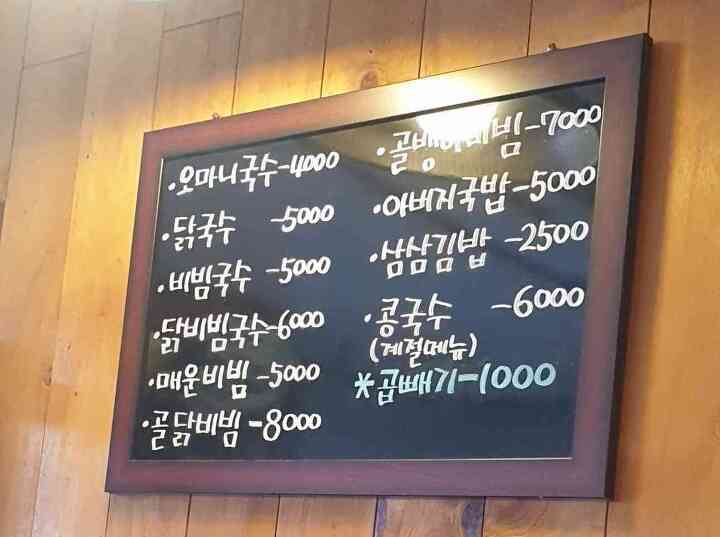 ·오마니국수-4000
·닭국수 -5000
·비빔국수 -5000
·닭비빔국수-6000
·매운비빔 -5000
·골닭비빔 -8000
·골뱅이비빔-7000
·아버지국밥-5000
·삼삼김밥 -2500
·콩국수 -6000
(계절메뉴)
*곱빼기-1000